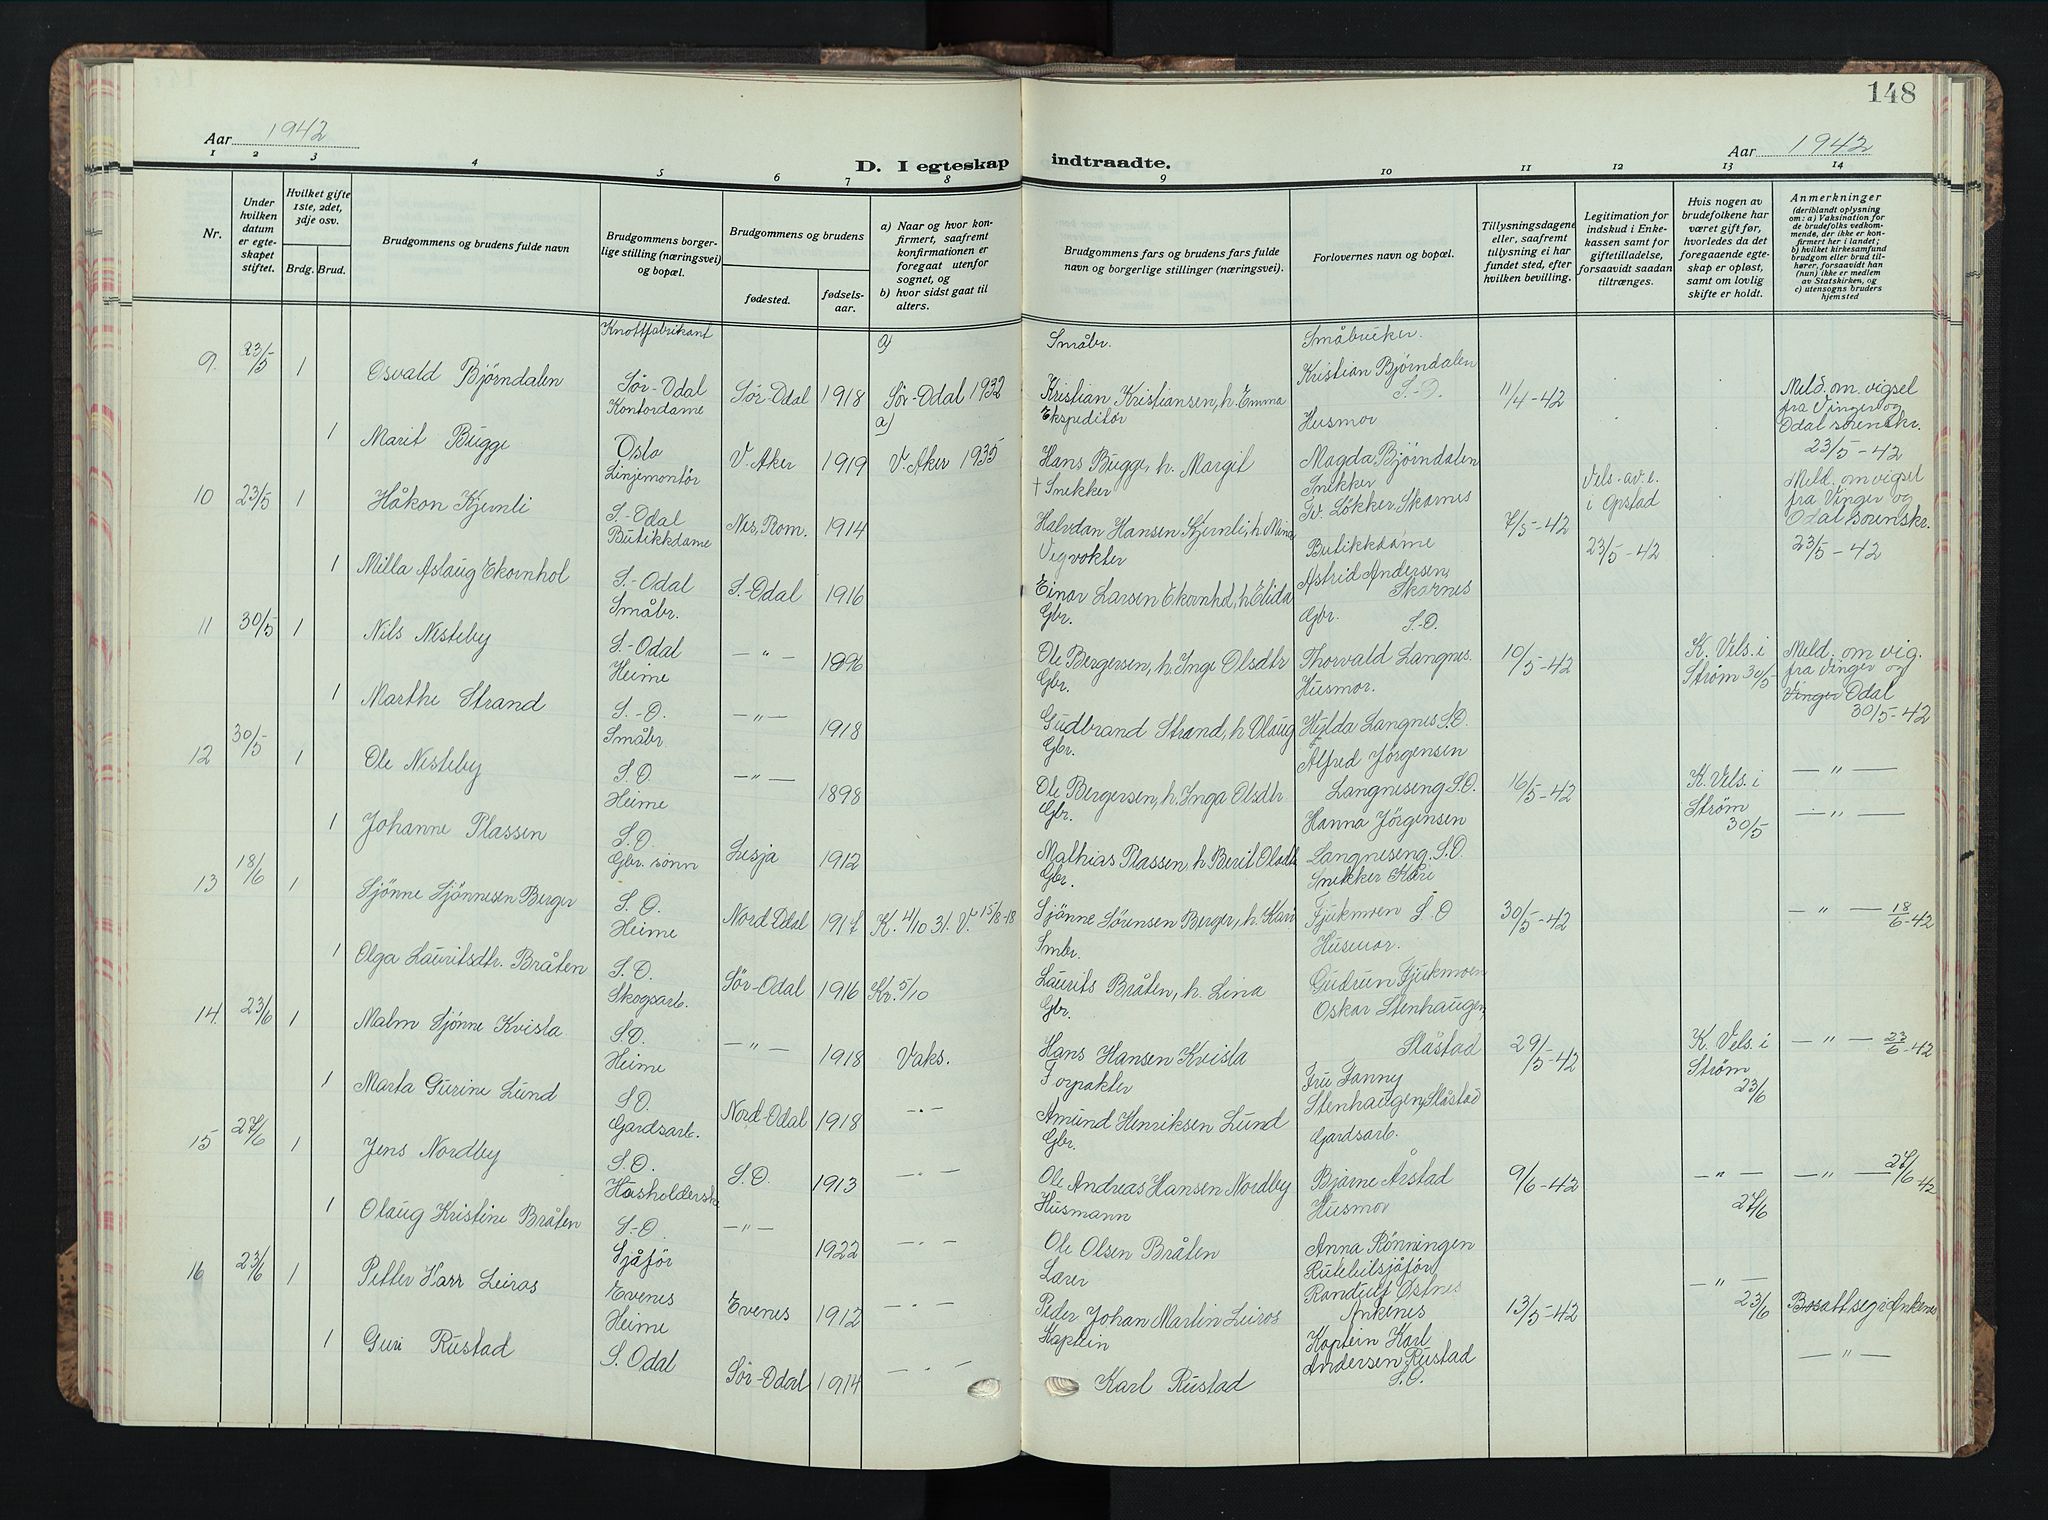 148
Aar 1942
D. I egteskap indtraadte.
Aar 1942
1 2 3 4 5 6 7 8 9 10 11 12 13 14
Nr.
Under hvilken datum er egteskapet stiftet.
Hvilket gifte 1ste, 2det, 3dje osv.
Brdg. Brud.
Brudgommens og brudens fulde navn
Brudgommens borgerlige stilling (næringsvei) og bopæl.
Brudgommens og brudens
fødested.
fødselsaar.
a) Naar og hvor konfirmert, saafremt konfirmationen er foregaat utenfor sognet, og
b) hvor sidst gaat til alters.
Brudgommens fars og brudens fars fulde navn og borgerlige stillinger (næringsvei).
Forlovernes navn og bopæl.
Tillysningsdagene eller, saafremt tillysning ei har fundet sted, efter hvilken bevilling.
Legitimation for indskud i Enkekassen samt for giftetilladelse, forsaavidt saadan tiltrænges.
Hvis nogen av brudefolkene har været gift før, hvorledes da det foregaaende egteskap er opløst, samt om lovlig skifte er holdt.
Anmerkninger
(deriblandt oplysning om: a) Vaksination for de brudefolks vedkommende, der ikke er konfirmert her i landet; b) hvilket kirkesamfund brudgom eller brud tilhører, forsaavidt han (hun) ikke er medlem av Statskirken, og c) utensogns bruders hjemsted
9. 23/5 1 Osvald Bjørndalen Knottfabrikant Sør-Odal Sør-Odal 1918 a) Sør-Odal 1932 Småbr. Kristian Kristiansen, h. Emma Småbruker Kristian Bjørndalen S.-O. 11/4-42 Meld om vigsel fra Vinger og Odal sorenskr. 23/5-42
1 Marit Bugge Kontordame Oslo V. Aker 1919 a) V. Aker 1935 Ekspeditør Hans Bugge, h. Margit Husmor Magda Bjørndalen
10 23/5 1 Håkon Kjernli Linjemontør S.-Odal Nes, Rom. 1914 † Snekker Halvdan Hansen Kjernli, h. Mina Snekker Tv. Løkker, Skarnes 7/5-42 Vels. av. e. i Opstad 23/5-42 Meld. om vigsel fra Vinger og Odal sorenskr. 23/5-42
1 Milla Aslaug Ekornhol Butikkdame S.-Odal S.-Odal 1916 Vegvokter Einar Larsen Ekornhol, h. Elida Butikkdame Astrid Andersen, Skarnes
11 30/5 1 Nils Nesteby Småbr. S.-Odal — " — 1896 Gbr. Ole Bergersen, h. Inge Olsdtr Gbr. S.-O. Thorvald Langnes. 10/5-42 K. Vels. i Strøm 30/5- Meld. om vig. fra Vinger og Vinger Odal 30/5-42
1 Marthe Strand Heime S.-O. — " — 1918 Gbr. Gudbrand Strand, h Olaug Husmor. Hylda Langnes S.O.
12 30/5 1 Ole Nesteby Småbr. S.O. — " — 1898 Gbr. Ole Bergersen, h. Inga Olsdtr Alfred Jørgensen Langneseng S.O. 16/5-42 K. Vels. i Strøm 30/5 — " —
1 Johanne Plassen Heime S.O. Lesja 1912 Gbr. Mathias Plassen, h Berit Olsdtr Hanna Jørgensen Langneseng. S.O. — " —
13 18/6 1 Sjønne Sjønnesen Berger Gbr. sønn S.O. Nord-Odal 1917 K. 4/10 31. V. 15/8-18 Gbr. Sjønne Sørensen Berger, h. Kari Snekker Kåre Fjukmoen S.O 30/5-42 — " — 18/6-42
1 Olga Lauritsdtr. Bråten Heime S.O. Sør-Odal 1916 Kr. 5/10 Smbr. Laurits Bråten, h. Lina Husmor. Gudrun Fjukmoen
14. 23/6 1 Malm Sjønne Kvisla Skogsarb. S.O. — " — 1918 Vaks. Gbr. Hans Hansen Kvisla Oskar Stenhaugen, Slåstad 29/5-42 K. Vels. i Strøm 23/6 — " — 23/6-42
1 Marta Gurine Lund Heime S.O. Nord-Odal 1918 — " — Forpakter Amund Henriksen Lund Fru Fanny Stenhaugen, Slåstad
15 27/6 1 Jens Nordby Gardsarb. S.O. S.O. 1913 — " — Gbr. Ole Andreas Hansen Nordby Gardsarb. Bjarne Årstad 9/6-42 — " — 27/6 — " — 27/6 42
1 Olaug Kristine Bråten Husholderske S.-O. — " — 1922 — " — Husmann Ole Olsen Bråten Husmor Anna Rønningen
16 23/6 1 Petter Harr Leiros Sjåfør Evenes Evenes 1912 — " — Lærer Peder Johan Martin Leiros Rutebilsjåfør Randulf Østnes Ankenes 13/5-42 — " — 23/6 Bosatt seg i Ankenes
1 Guri Rustad Heime S. Odal Sør-Odal 1914 — " — Kaptein Karl Rustad Kaptein Karl Andersen Rustad S.O. — " —